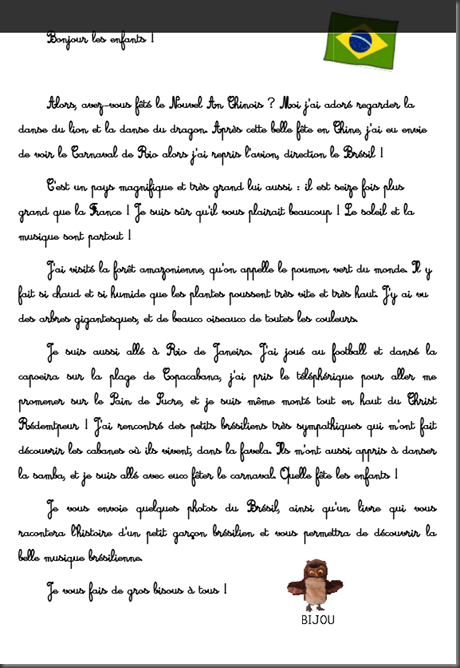 Bonjour les enfants !
Alors, avez-vous fêté le Nouvel An Chinois ? Moi j'ai adoré regarder la
danse du lion et la danse du dragon. Après cette belle fête en Chine, j'ai eu envie
de voir le Carnaval de Rio alors j'ai repris l'avion, direction le Brésil !
C'est un pays magnifique et très grand lui aussi : il est seize fois plus
grand que la France ! Je suis sûr qu'il vous plairait beaucoup ! Le soleil et la
musique sont partout !
J'ai visité la forêt amazonienne, qu'on appelle le poumon vert du monde. Il y
fait si chaud et si humide que les plantes poussent très vite et très haut. J'y ai vu
des arbres gigantesques, et de beaux oiseaux de toutes les couleurs.
Je suis aussi allé à Rio de Janeiro. J'ai joué au football et dansé la
capoeira sur la plage de Copacabana, j'ai pris le téléphérique pour aller me
promener sur le Pain de Sucre, et je suis même monté tout en haut du Christ
Rédemtpeur ! J'ai rencontré des petits brésiliens très sympathiques qui m'ont fait
découvrir les cabanes où ils vivent, dans la favela. Ils m'ont aussi appris à danser
la samba, et je suis allé avec eux fêter le carnaval. Quelle fête les enfants !
Je vous envoie quelques photos du Brésil, ainsi qu'un livre qui vous
racontera l'histoire d'un petit garçon brésilien et vous permettra de découvrir la
belle musique brésilienne.
Je vous fais de gros bisous à tous !
BIJOU